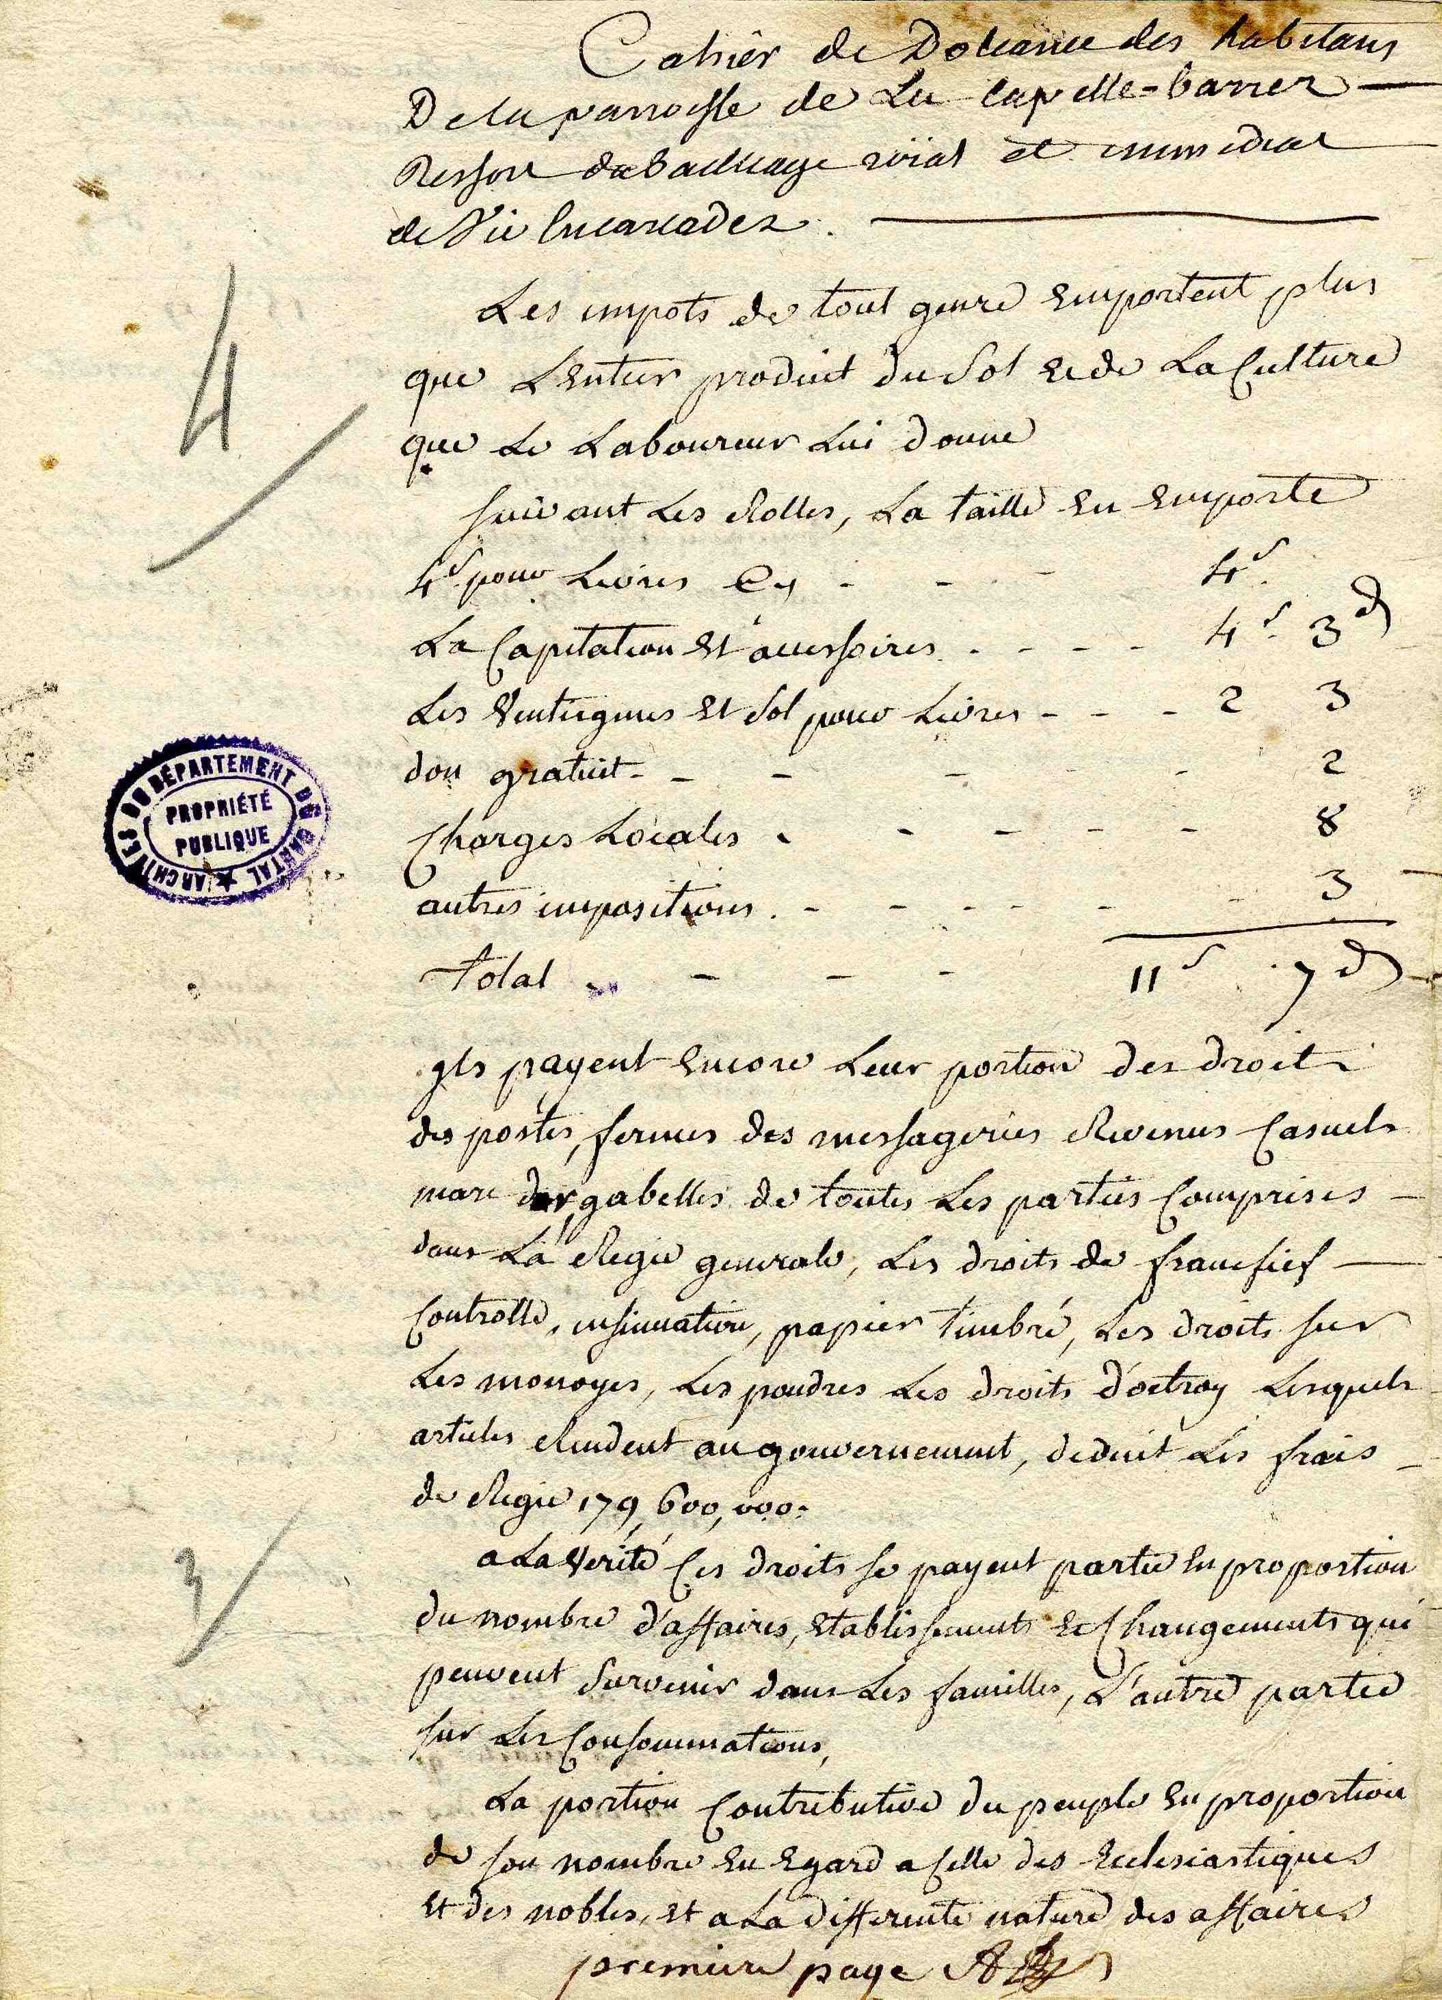 Cahièr de Doleance des habitans
De la parroisse de La Capelle-barrez
Ressort du bailliage roïal et immediat
de Vic En carladez.
Les impots de tout genre Emportent plus
que L'Entier produit du Sol et de La Culture
que Le Laboureur Lui donne
Suivant Les Rolles, La taille En Emporte
4s. pour Livres Cy - - - 4s.
La Capitation Et accessoires - - - - 4s. 3d
Les Vintiemes Et Sol pour Livres - - - 2 3
don gratuit - - - - - 2
Charges Locales - - - - - 8
autres impositions - - - - - - 3
Total - - - 11s. 7d
4
ARCHIVES DU DÉPARTEMENT DU CANTAL
PROPRIÉTÉ
PUBLIQUE
Ils payent Encore Leur portion des droits
des postes, fermes des messageries Revenus Casuels
marc d'or, gabelles de toutes Les parties Comprises
dans La Regie generale, Les droits de francfief
Controlle, insinuation, papier timbré, Les droits sur
Les monoyes, Les poudres Les droits d'octroy Lesquels
articles Rendent au gouvernement, deduit Les frais
de Regie 179,600,000.
a La Vérité Ces droits se payent partie En proportion
du nombre d'affaires, Etablissements Et Changements qui
peuvent Survenir dans Les familles, L'autre partie
sur Les Consommations,
3
La portion Contributive du peuple En proportion
de son nombre En Egard a Celle des Ecclesiastiques
Et des nobles, Et a La differente nature des affaires
premiere page